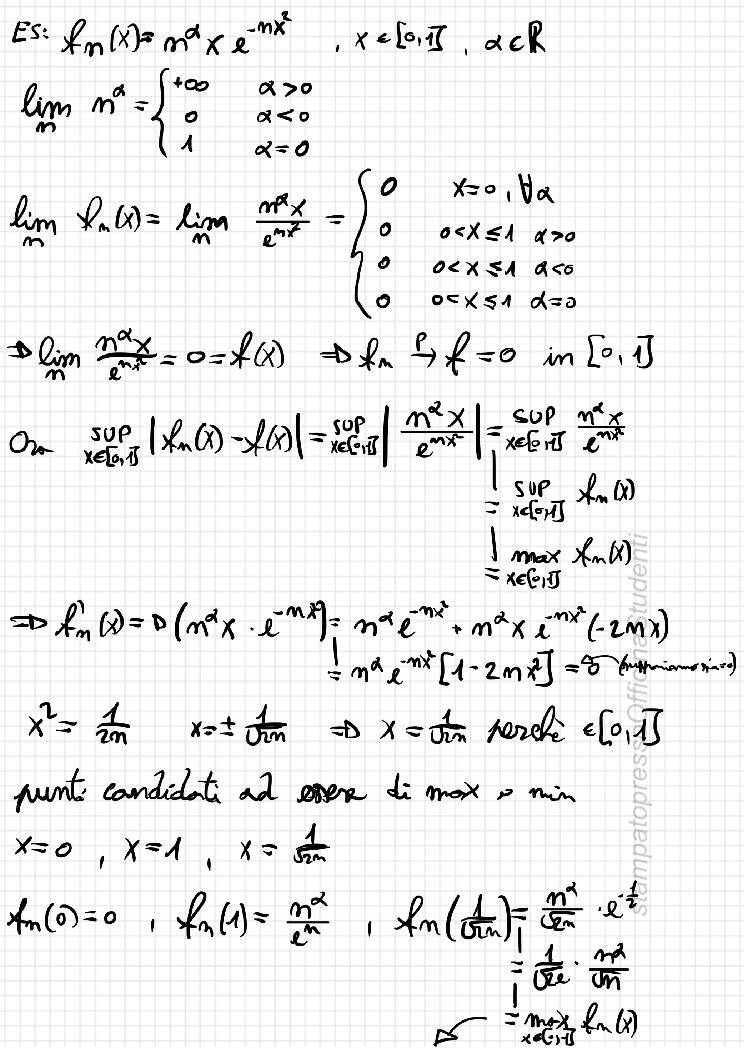 ES: fn(x) = n^α x e^{-nx²} , x ∈ [0,1] , α ∈ ℝ
lim_n n^α = { +∞ α>0
0 α<0
1 α=0
lim_n fn(x) = lim_n n^α x / e^{nx²} = { 0 x=0, ∀α
0 0<x≤1 α>0
0 0<x≤1 α<0
0 0<x≤1 α=0
⇒ lim_n n^α x / e^{nx²} = 0 = f(x) ⇒ fn →^P f = 0 in [0,1]
Ora sup_{x∈[0,1]} |fn(x) - f(x)| = sup_{x∈[0,1]} | n^α x / e^{nx²} | = sup_{x∈[0,1]} n^α x / e^{nx²}
= sup_{x∈[0,1]} fn(x)
= max_{x∈[0,1]} fn(x)
⇒ fn'(x) = D(n^α x · e^{-nx²}) = n^α e^{-nx²} + n^α x e^{-nx²} (-2nx)
= n^α e^{-nx²} [1 - 2nx²] = 0
x² = 1/2n x = ± 1/√2n ⇒ x = 1/√2n perché ∈ [0,1]
punti candidati ad essere di max o min
x=0 , x=1 , x = 1/√2n
fn(0) = 0 , fn(1) = n^α / e^n , fn(1/√2n) = n^α/√2n · e^{-1/2}
= 1/√2e · n^α/√n
= max_{x∈[0,1]} fn(x)
stampatopress Officina Studenti